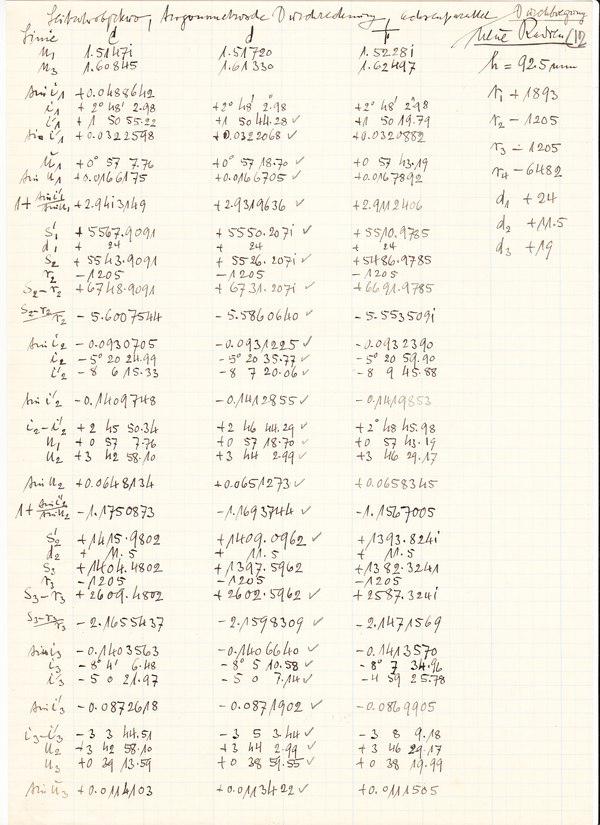 Durchbiegung
trigonometrische Durchrechnung, achsenparallel
Linie C d F Neue Radien (12)
n₁ 1.51471 1.51720 1.52281 h = 92.5 mm
n₃ 1.60845 1.61330 1.62497
sin i₁ +0.0488642 r₁ + 1893
i₁ +2° 48' 2.98 +2° 48' 2.98 +2° 48' 2.98
i'₁ +1 50 55.22 +1 50 44.28 ✓ +1 50 19.79 r₂ - 1205
sin i'₁ +0.0322598 +0.0322068 ✓ +0.0320882
r₃ - 1205
u₁ +0° 57 7.76 +0° 57 18.70 ✓ +0 57 43.19 r₄ - 6482
sin u₁ +0.0166175 +0.0166705 ✓ +0.0167892
1 + sin i'₁/sin u₁ +2.9413149 +2.9319636 ✓ +2.9112406 d₁ + 24
d₂ + 11.5
s'₁ +5567.9091 +5550.2071 ✓ +5510.9785
d₁ + 24 + 24 + 24 d₃ + 19
s₂ +5543.9091 +5526.2071 ✓ +5486.9785
r₂ -1205 -1205 -1205
s₂-r₂ +6748.9091 +6731.2071 ✓ +6691.9785
s₂-r₂/r₂ -5.6007544 -5.5860640 ✓ -5.5535091
sin i₂ -0.0930705 -0.0931225 ✓ -0.0932390
i₂ -5° 20 24.99 -5° 20 35.77 ✓ -5° 20 59.90
i'₂ -8 6 15.33 -8 7 20.06 ✓ -8 9 45.88
sin i'₂ -0.1409748 -0.1412855 ✓ -0.1419853
i₂-i'₂ +2 45 50.34 +2 46 44.29 ✓ +2° 48 45.98
u₁ +0 57 7.76 +0 57 18.70 ✓ +0 57 43.19
u₂ +3 42 58.10 +3 44 2.99 ✓ +3 46 29.17
sin u₂ +0.0648134 +0.0651273 ✓ +0.0658345
1 + sin i'₂/sin u₂ -1.1750873 -1.1693744 ✓ -1.1567005
s'₂ +1415.9802 +1409.0962 ✓ +1393.8241
d₂ + 11.5 + 11.5 + 11.5
s₃ +1404.4802 +1397.5962 +1382.3241
r₃ -1205 -1205 -1205
s₃-r₃ +2609.4802 +2602.5962 ✓ +2587.3241
s₃-r₃/r₃ -2.1655437 -2.1598309 ✓ -2.1471569
sin i₃ -0.1403563 -0.1406640 ✓ -0.1413570
i₃ -8° 4' 6.48 -8° 5 10.58 ✓ -8° 7 34.96
i'₃ -5 0 21.97 -5 0 7.14 ✓ -4 59 25.78
sin i'₃ -0.0872618 -0.0871902 ✓ -0.0869905
i₃-i'₃ -3 3 44.51 -3 5 3.44 ✓ -3 8 9.18
u₂ +3 42 58.10 +3 44 2.99 ✓ +3 46 29.17
u₃ +0 39 13.59 +0 38 59.55 ✓ +0 38 19.99
sin u₃ +0.0114103 +0.0113422 ✓ +0.0111505